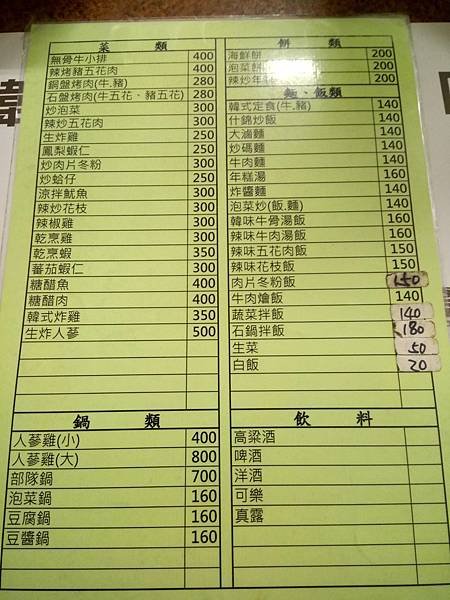 菜 類
無骨牛小排 400
辣烤豬五花肉 400
銅盤烤肉(牛.豬) 280
石盤烤肉(牛五花、豬五花) 280
炒泡菜 300
辣炒五花肉 300
生炸雞 250
鳳梨蝦仁 250
炒肉片冬粉 300
炒蛤仔 250
涼拌魷魚 300
辣炒花枝 300
辣椒雞 300
乾烹雞 300
乾烹蝦 350
蕃茄蝦仁 300
糖醋魚 400
糖醋肉 400
韓式炸雞 350
生炸人蔘 500
鍋 類
人蔘雞(小) 400
人蔘雞(大) 800
部隊鍋 700
泡菜鍋 160
豆腐鍋 160
豆醬鍋 160
餅 類
海鮮餅 200
泡菜餅 200
辣炒年 200
麵、飯類
韓式定食(牛.豬) 140
什錦炒飯 140
大滷麵 140
炒碼麵 140
牛肉麵 140
年糕湯 160
炸醬麵 140
泡菜炒(飯.麵) 140
韓味牛骨湯飯 160
辣味牛肉湯飯 160
辣味五花肉飯 150
辣味花枝飯 150
肉片冬粉飯 150
牛肉燴飯 140
蔬菜拌飯 140
石鍋拌飯 180
生菜 50
白飯 20
飲 料
高粱酒
啤酒
洋酒
可樂
真露